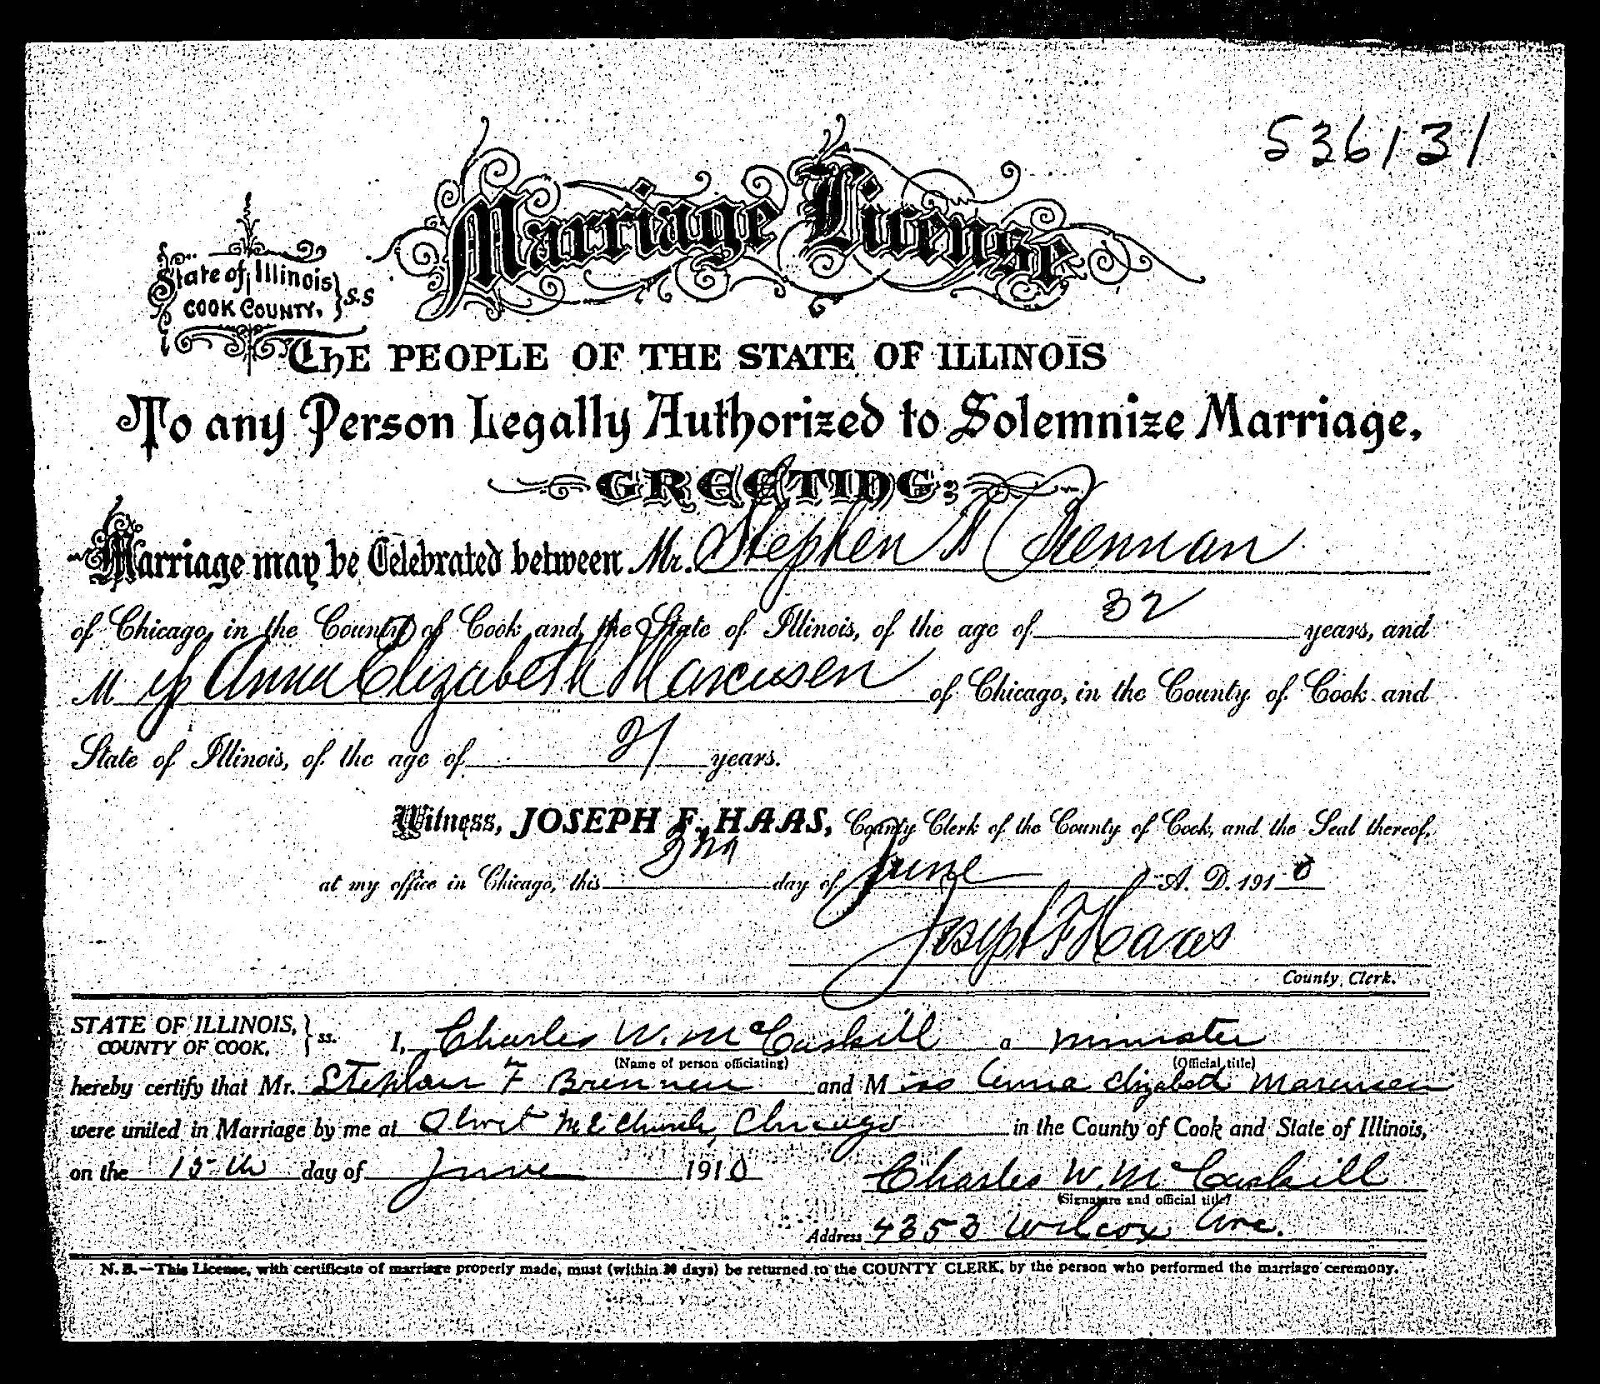 536131
Marriage License
State of Illinois
COOK COUNTY. } S.S
The PEOPLE OF THE STATE OF ILLINOIS
To any Person Legally Authorized to Solemnize Marriage,
GREETING:
Marriage may be Celebrated between Mr. Stephen F Brennan
of Chicago, in the County of Cook and the State of Illinois, of the age of 32 years, and
Miss Anna Elizabeth Marcusen of Chicago, in the County of Cook and
State of Illinois, of the age of 21 years.
Witness, JOSEPH F. HAAS, County Clerk of the County of Cook, and the Seal thereof,
at my office in Chicago, this 2nd day of June A. D. 1910
Joseph F Haas
County Clerk.
STATE OF ILLINOIS, } ss. I, Charles W. McCaskill a minister
COUNTY OF COOK,
(Name of person officiating) (Official title)
hereby certify that Mr. Stephen F Brennen and Miss Anna Elizabeth Marcusen
were united in Marriage by me at Olivet M E Church, Chicago in the County of Cook and State of Illinois,
on the 15th day of June 1910 Charles W. McCaskill
(Signature and official title)
Address 4353 Wilcox Ave.
N. B.—This License, with certificate of marriage properly made, must (within 30 days) be returned to the COUNTY CLERK, by the person who performed the marriage ceremony.